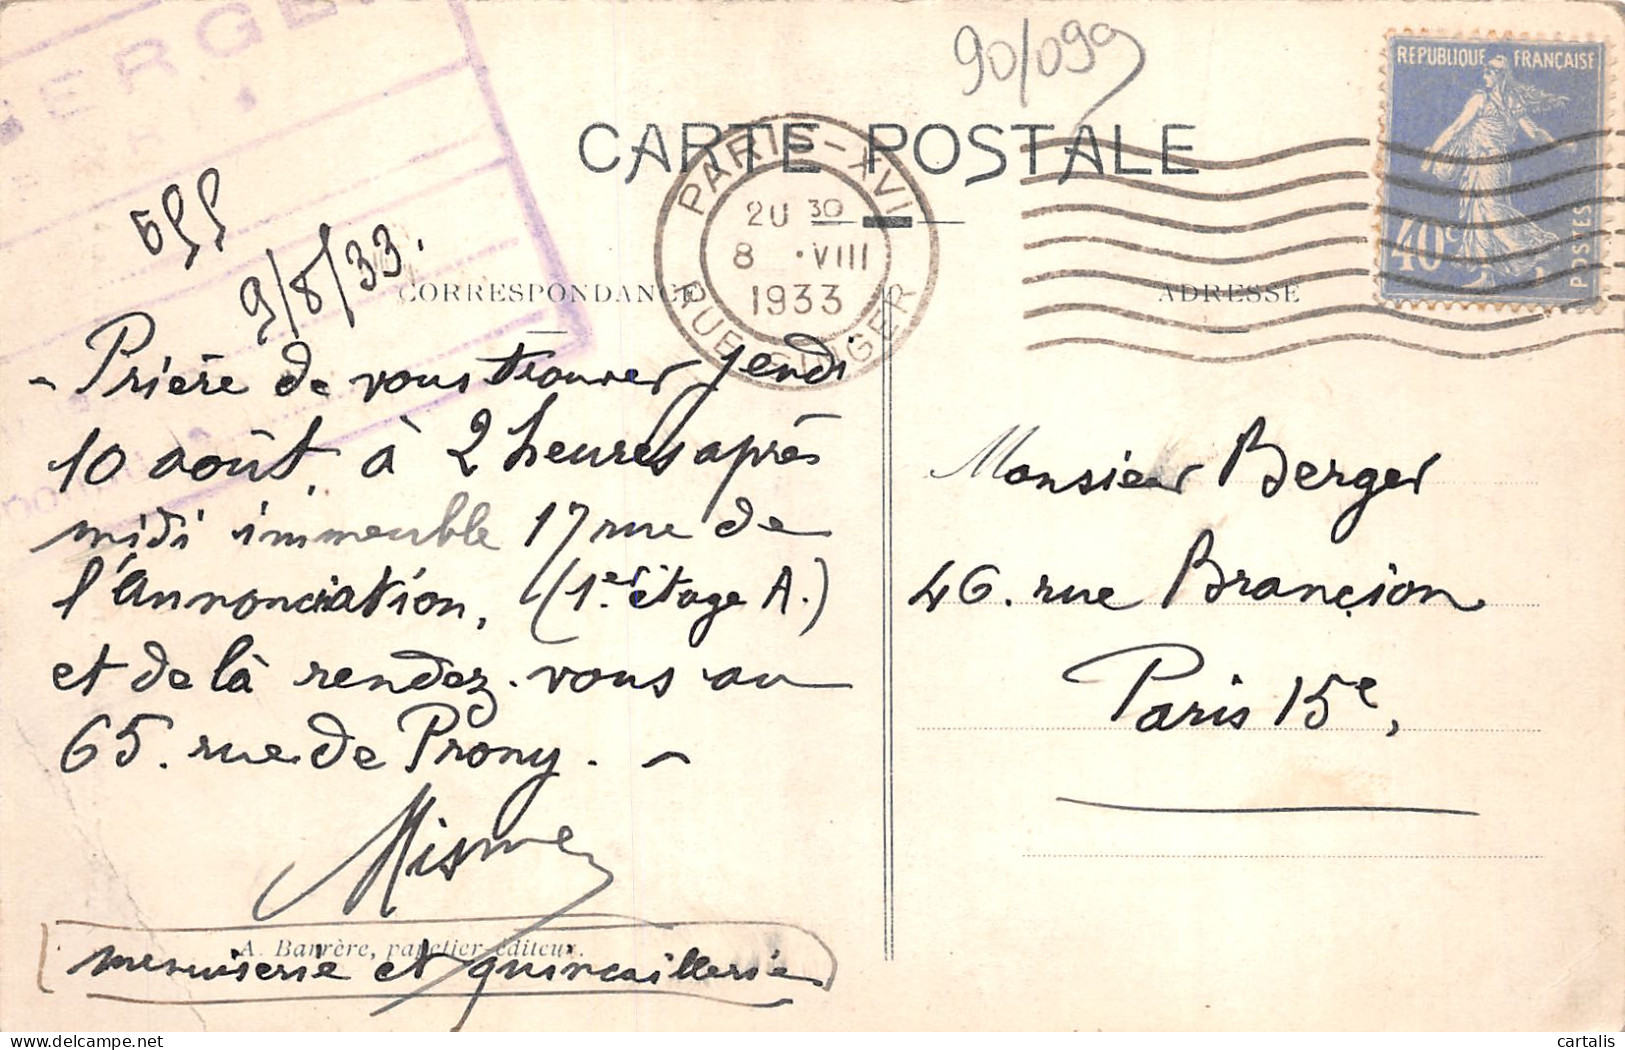 BERGER
90/099
REPUBLIQUE FRANÇAISE
40c
POSTES
CARTE POSTALE
PARIS-XVI
20 30
8 · VIII
1933
RUE SINGER
CORRESPONDANCE
ADRESSE
9/8/33.
- Prière de vous trouver jeudi
10 août, à 2 heures après
midi immeuble 17 rue de
l'annonciation, (1er étage A.)
et de là rendez-vous au
65. rue de Prony. -
A. Barrère, papetier-éditeur.
menuiserie et quincaillerie
Monsieur Berger
46. rue Brancion
Paris 15e,
cartalis
delcampe.net